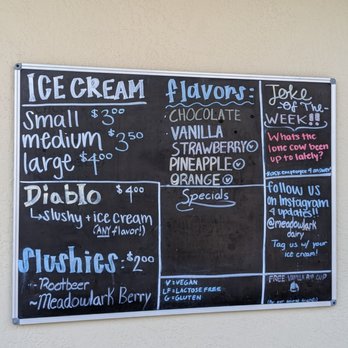 ICE CREAM
Small $3.00
medium $3.50
large $4.00
Diablo $4.00
slushy + ice cream
(ANY flavor!)
Slushies: $2.00
- Rootbeer
- Meadowlark Berry
flavors:
CHOCOLATE
VANILLA
STRAWBERRY V
PINEAPPLE V
ORANGE V
Specials
V = VEGAN
LF = LACTOSE FREE
G = GLUTEN
Joke
- Of The
WEEK!!
Whats the
lone cow been
up to lately?
*ASK employee 4 answer*
Follow us
on Instagram
4 updates!!
@meadowlark
dairy
Tag us w/ your
ice cream!
FREE VANILLA PUP CUP